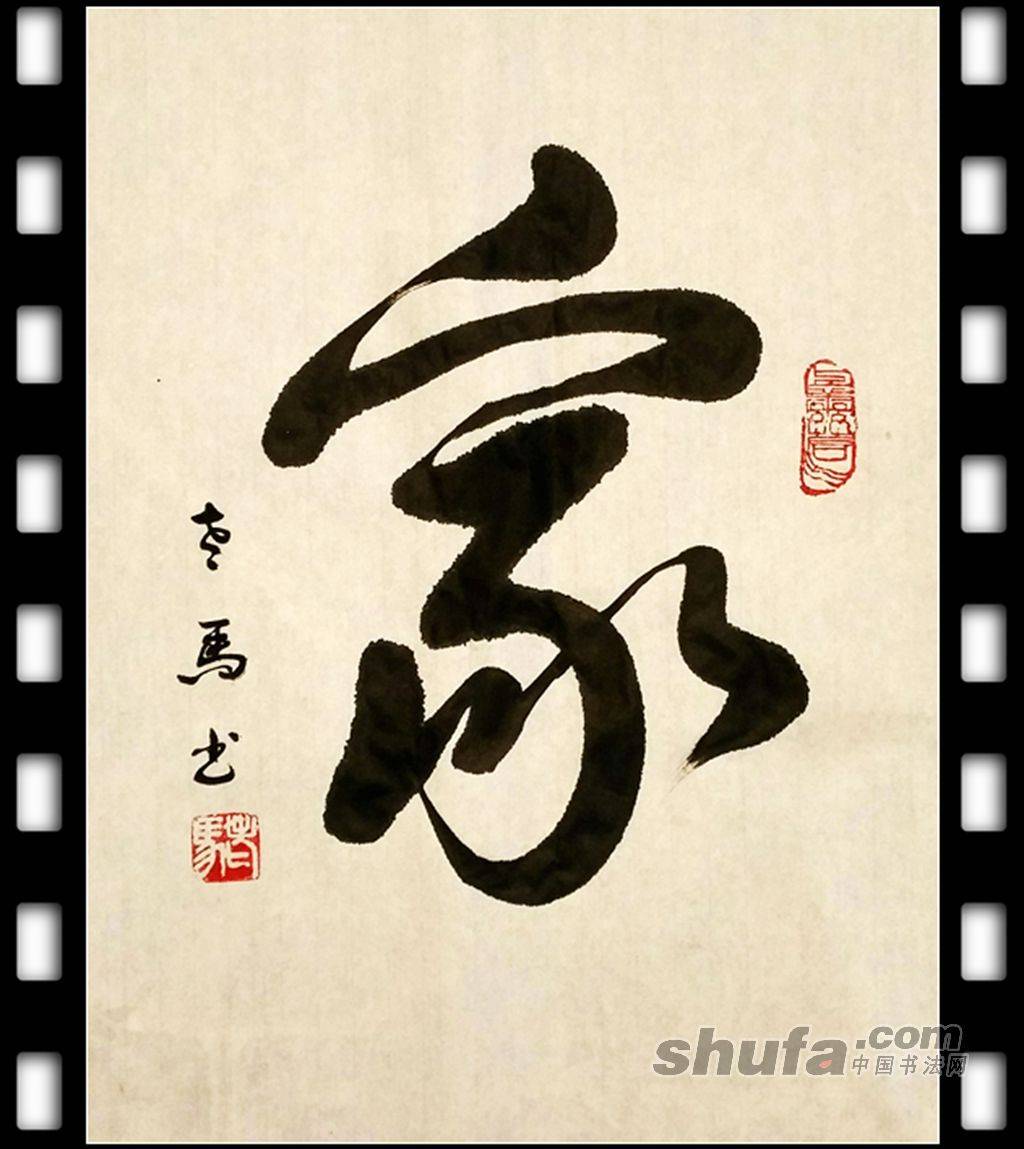 家
老馬书
shufa.com
中国书法网